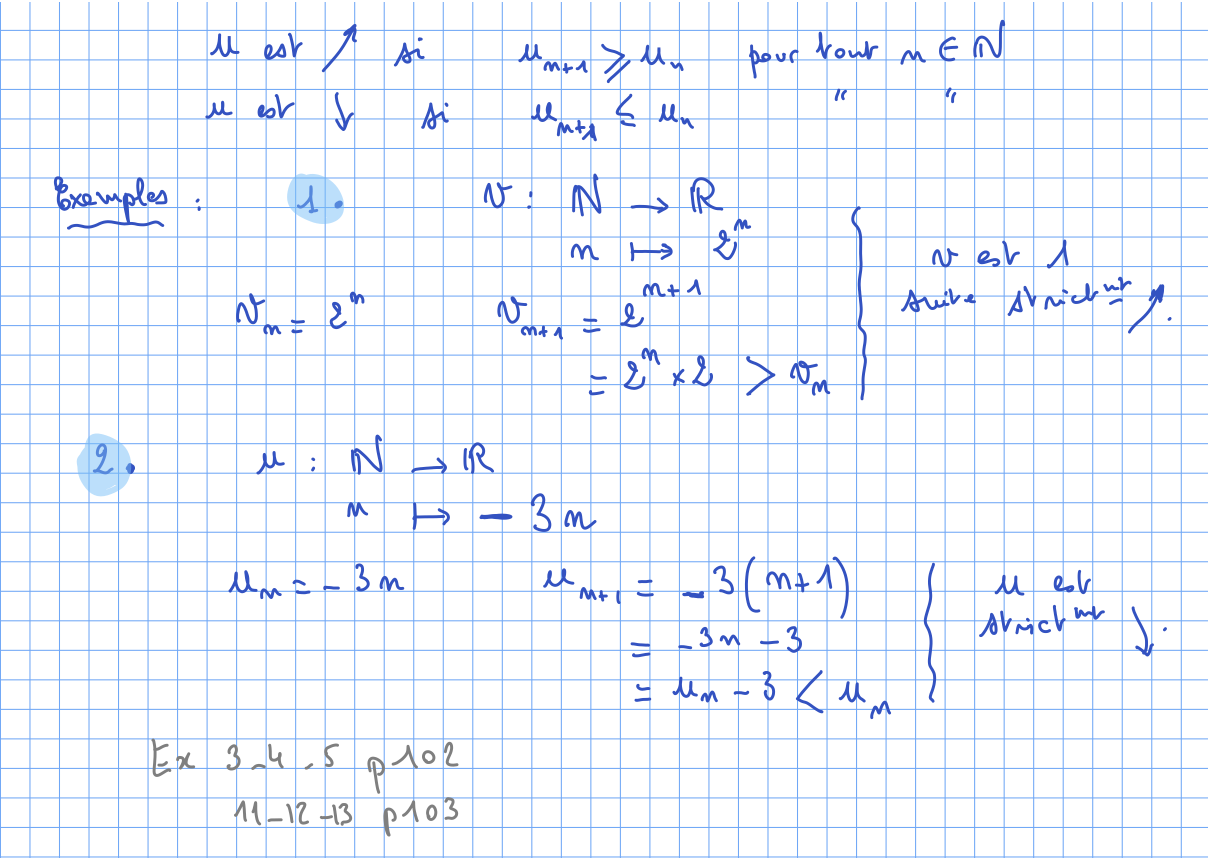 u est ↗ si u_{n+1} ⩾ u_n pour tout n ∈ ℕ
u est ↓ si u_{n+1} ≤ u_n " "
Exemples : 1. v : ℕ → ℝ
n ↦ 2^n
v_n = 2^n v_{n+1} = 2^{n+1}
= 2^n × 2 > v_n
v est 1
suite strict^{mt} ↗.
2. u : ℕ → ℝ
n ↦ - 3n
u_n = - 3n u_{n+1} = - 3(n+1)
= -3n - 3
= u_n - 3 < u_n
u est
strict^{mt} ↓.
Ex 3-4-5 p102
11-12-13 p103